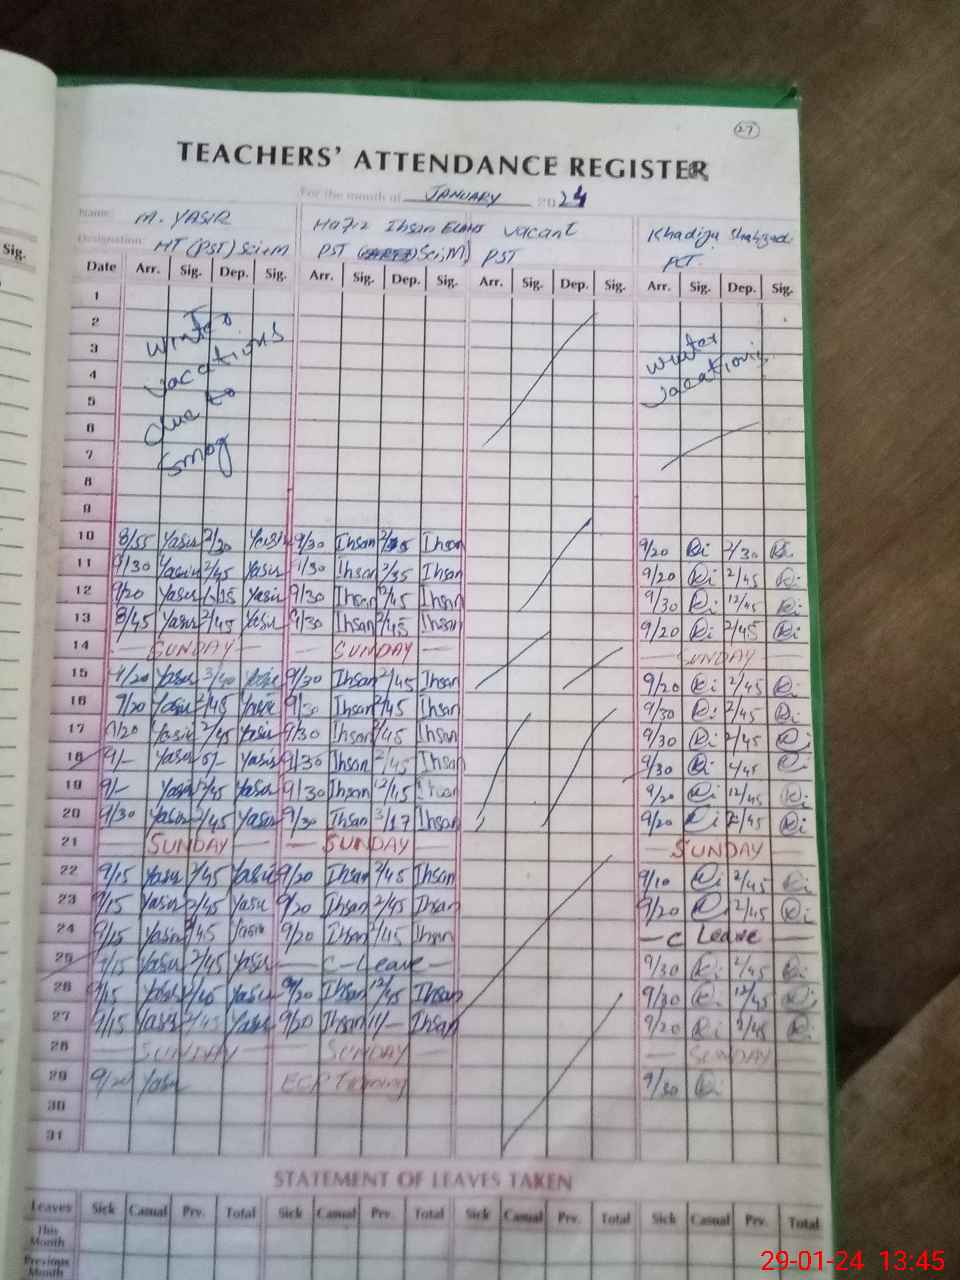 27
TEACHERS' ATTENDANCE REGISTER
For the month of JANUARY 2024
Name: M. YASIR Hafiz Ihsan vacant Khadija Shahzad
Sig.
Designation: HT (PST) Sci; m PST Sci; M) PST
Date Arr. Sig. Dep. Sig. Arr. Sig. Dep. Sig. Arr. Sig. Dep. Sig. Arr. Sig. Dep. Sig.
1
2 winter
3 vacations winter
4 vacations
5 due to
6
7 smog
8
9
10 8/55 Yasir 2/30 Yasir 9/30 Ihsan Ihsan 9/20 2/30
11 9/30 Yasir 2/45 Yasir 9/30 Ihsan 2/35 Ihsan 9/20 2/45
12 9/20 Yasir Yasir 9/30 Ihsan 12/45 Ihsan 9/30 12/45
13 8/45 Yasir 2/45 Yasir 9/30 Ihsan 2/45 Ihsan 9/20 2/45
14 — SUNDAY — — SUNDAY — — SUNDAY —
15 9/20 Yasir 2/40 9/30 Ihsan 2/45 Ihsan 9/20 2/45
16 9/20 Yasir 2/45 9/30 Ihsan 2/45 Ihsan 9/30 2/45
17 9/20 Yasir 2/45 Yasir 9/30 Ihsan 2/45 Ihsan 9/30 2/45
18 9/- Yasir Yasir 9/30 Ihsan 2/45 Ihsan 9/30
19 9/- Yasir 12/45 Yasir 9/30 Ihsan 12/15 Ihsan 9/20 12/45
20 9/30 Yasir 2/45 Yasir 9/30 Ihsan 3/17 Ihsan 9/20 2/45
21 — SUNDAY — — SUNDAY — — SUNDAY —
22 9/15 Yasir 2/45 Yasir 9/20 Ihsan 2/45 Ihsan 9/10 2/45
23 9/15 Yasir 2/45 Yasir 9/20 Ihsan 2/45 Ihsan 9/20 2/45
24 9/15 Yasir 2/45 Yasir 9/20 Ihsan 2/45 Ihsan — C Leave —
25 9/15 Yasir 2/45 Yasir — C-Leave — 9/30 2/45
26 9/15 Yasir Yasir 9/20 Ihsan 12/45 Ihsan 9/30 12/45
27 9/15 Yasir 2/45 Yasir 9/20 Ihsan Ihsan 9/20 2/45
28 — SUNDAY — — SUNDAY — — SUNDAY —
29 9/20 Yasir Training 9/30
30
31
STATEMENT OF LEAVES TAKEN
Leaves Sick Casual Prv. Total Sick Casual Prv. Total Sick Casual Prv. Total Sick Casual Prv. Total
This
Month
Previous
Month
29-01-24 13:45